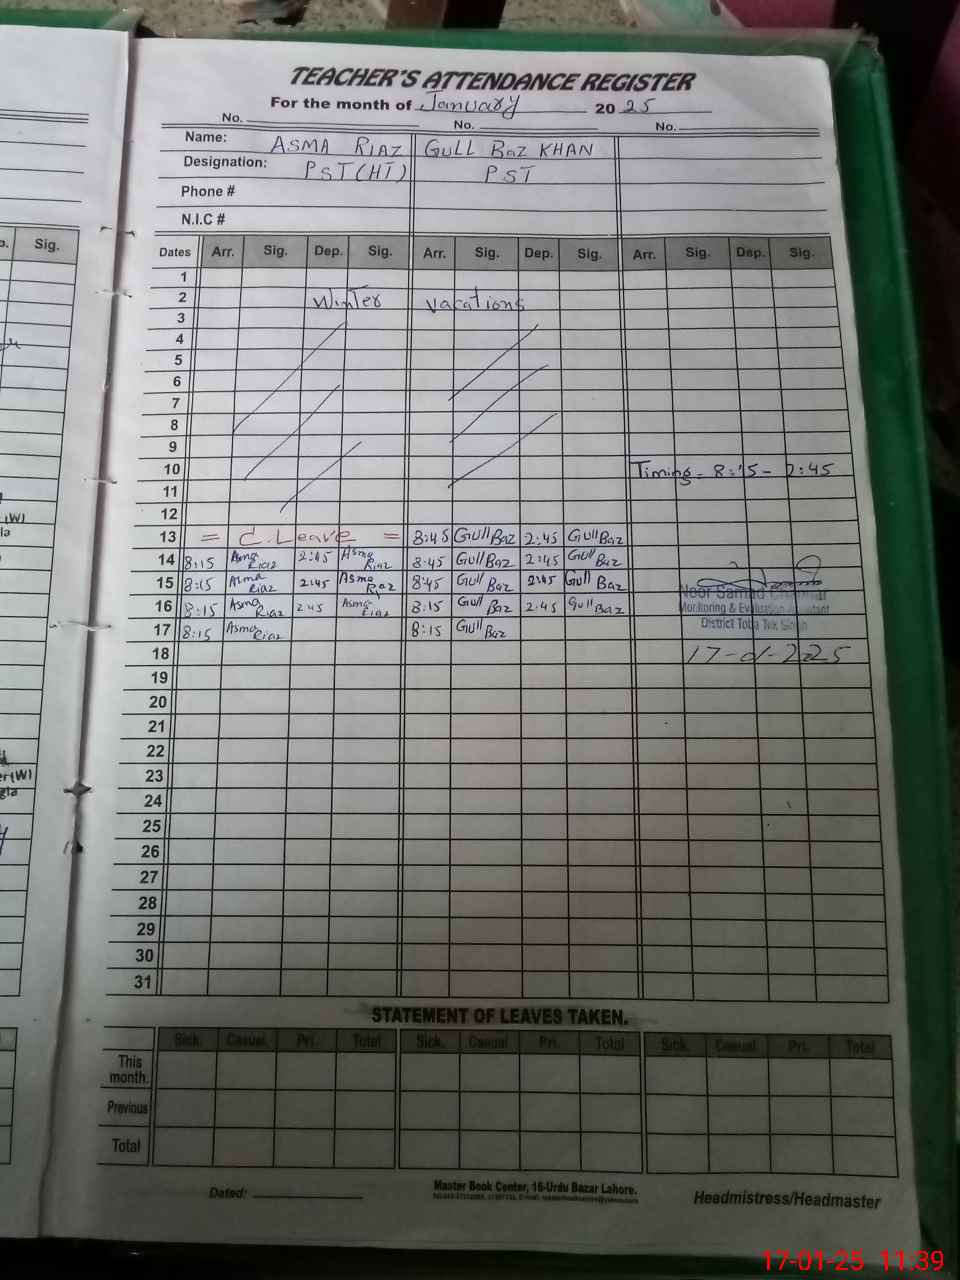 TEACHER'S ATTENDANCE REGISTER
For the month of January 2025
No. No. No.
Name: ASMA RIAZ GULL BAZ KHAN
Designation: PST(HT) PST
Phone #
N.I.C #
Sig.
Dates Arr. Sig. Dep. Sig. Arr. Sig. Dep. Sig. Arr. Sig. Dep. Sig.
1
2 Winter vacations
3
4
5
6
7
8
9
10 Timing = 8:15 - 2:45
11
12
13 = C.Leave = 8:45 Gull Baz 2:45 Gull Baz
14 8:15 Asma Riaz 2:45 Asma Riaz 8:45 Gull Baz 2:45 Gull Baz
15 8:15 Asma Riaz 2:45 Asma Riaz 8:45 Gull Baz 2:45 Gull Baz
16 8:15 Asma Riaz 2:45 Asma Riaz 8:15 Gull Baz 2:45 Gull Baz
17 8:15 Asma Riaz 8:15 Gull Baz
Noor Samad
Monitoring & Evaluation Assistant
District Toba Tek Singh
18 17-01-2025
19
20
21
22
23
24
25
26
27
28
29
30
31
STATEMENT OF LEAVES TAKEN.
Sick. Casual. Pri. Total Sick. Casual Pri. Total Sick. Casual. Pri. Total
This month.
Previous
Total
Dated:
Master Book Center, 16-Urdu Bazar Lahore.
Headmistress/Headmaster
17-01-25 11:39